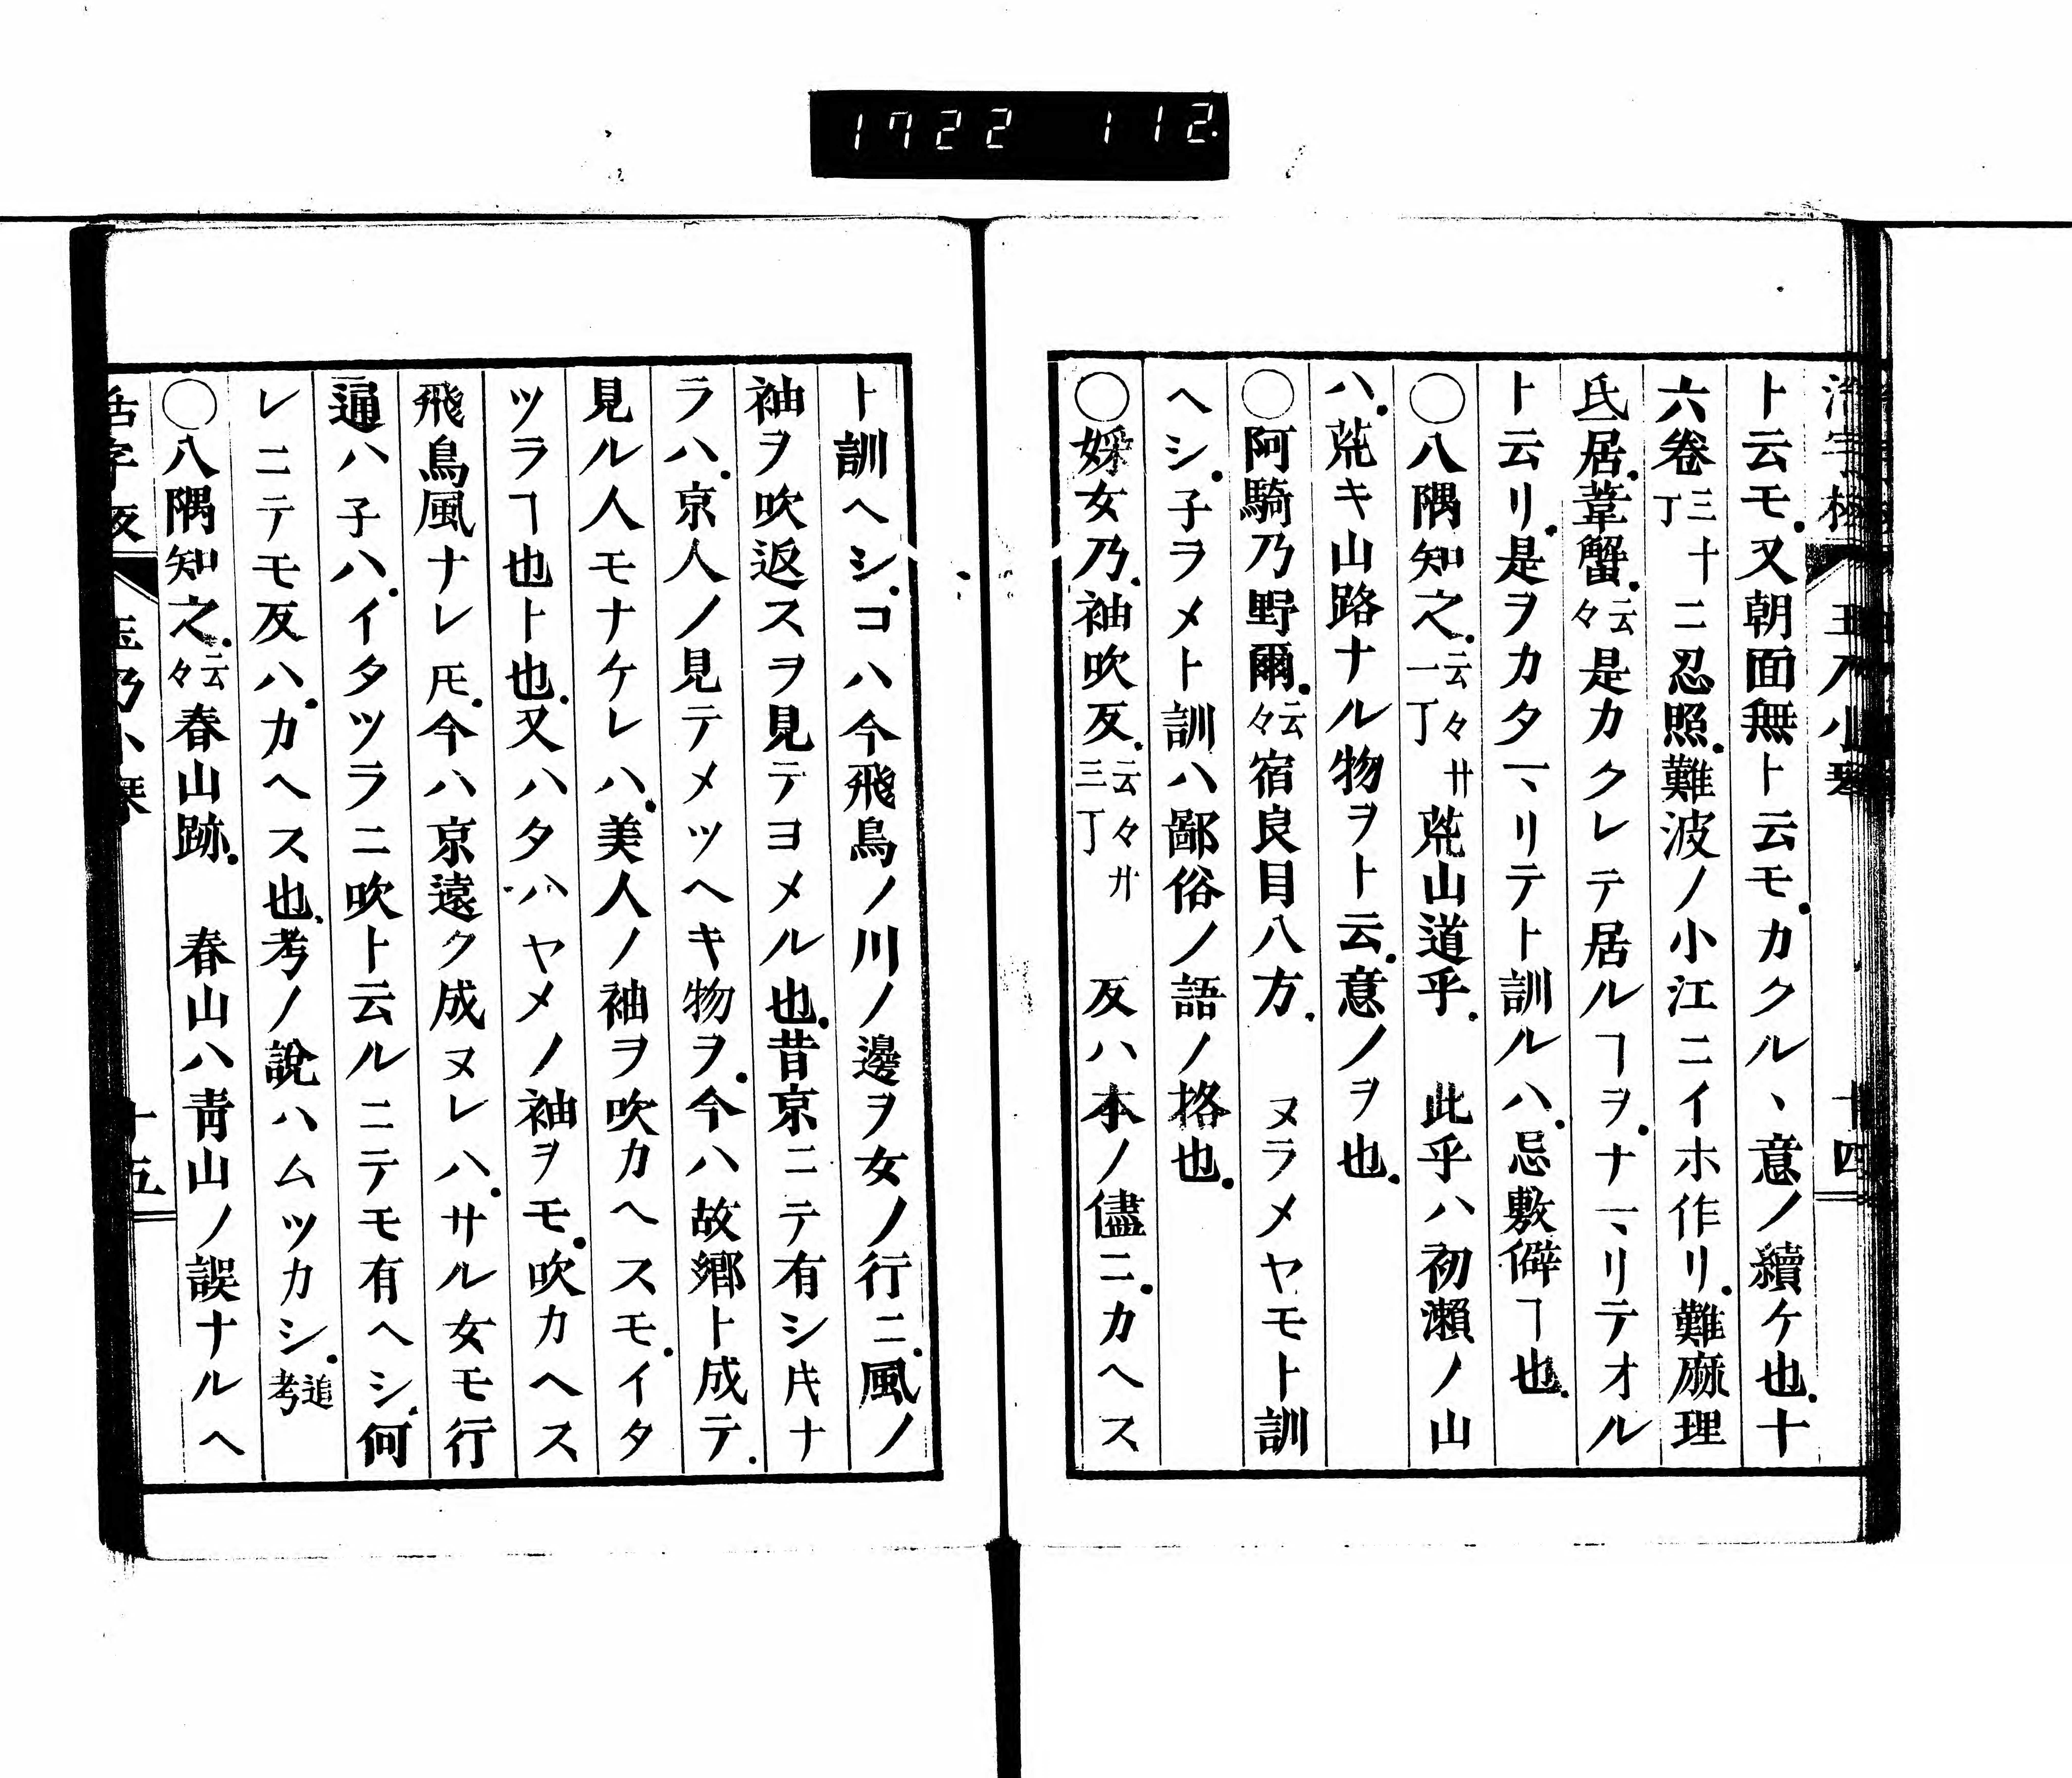 1722 112
玉乃小琴 十四
ト云モ.又朝面無ト云モ.カクル丶意ノ續ケ也.十
六卷三十丁ニ忍照.難波ノ小江ニイホ作リ.難麻理
氐居.葦蟹.云々是カクレテ居ルヿヲ.ナヽリテオル
ト云リ.是ヲカタヽリテト訓ルハ.忌敷僻ヿ也.
〇八隅知之.云々廿一丁荒山道乎.　此乎ハ初瀨ノ山
ハ.荒キ山路ナル物ヲト云.意ノヲ也.
〇阿騎乃野爾.云々宿良目八方.　ヌラメヤモト訓
ヘシ.子ヲメト訓ハ鄙俗ノ語ノ挌也.
〇婇女乃.袖吹反.云々廿三丁　反ハ本ノ儘ニ.カヘス
ト訓ヘシ.コハ今飛鳥ノ川ノ邊ヲ女ノ行ニ.風ノ
袖ヲ吹返スヲ見テヨメル也.昔京ニテ有シ𪜈ナ
ラハ.京人ノ見テメツヘキ物ヲ.今ハ故鄉ト成テ.
見ル人モナケレハ.美人ノ袖ヲ吹カヘスモ.イタ
ツラヿ也ト也.又ハタハヤメノ袖ヲモ.吹カヘス
飛鳥風ナレ𪜈.今ハ京遠ク成ヌレハ.サル女モ行
逼ハ子ハ.イタツラニ吹ト云ルニテモ有ヘシ.何
レニテモ反ハ.カヘス也.考ノ說ハムツカシ.追考
〇八隅知之.云々春山跡.　春山ハ靑山ノ誤ナルヘ
活字板 玉乃小琴 十五